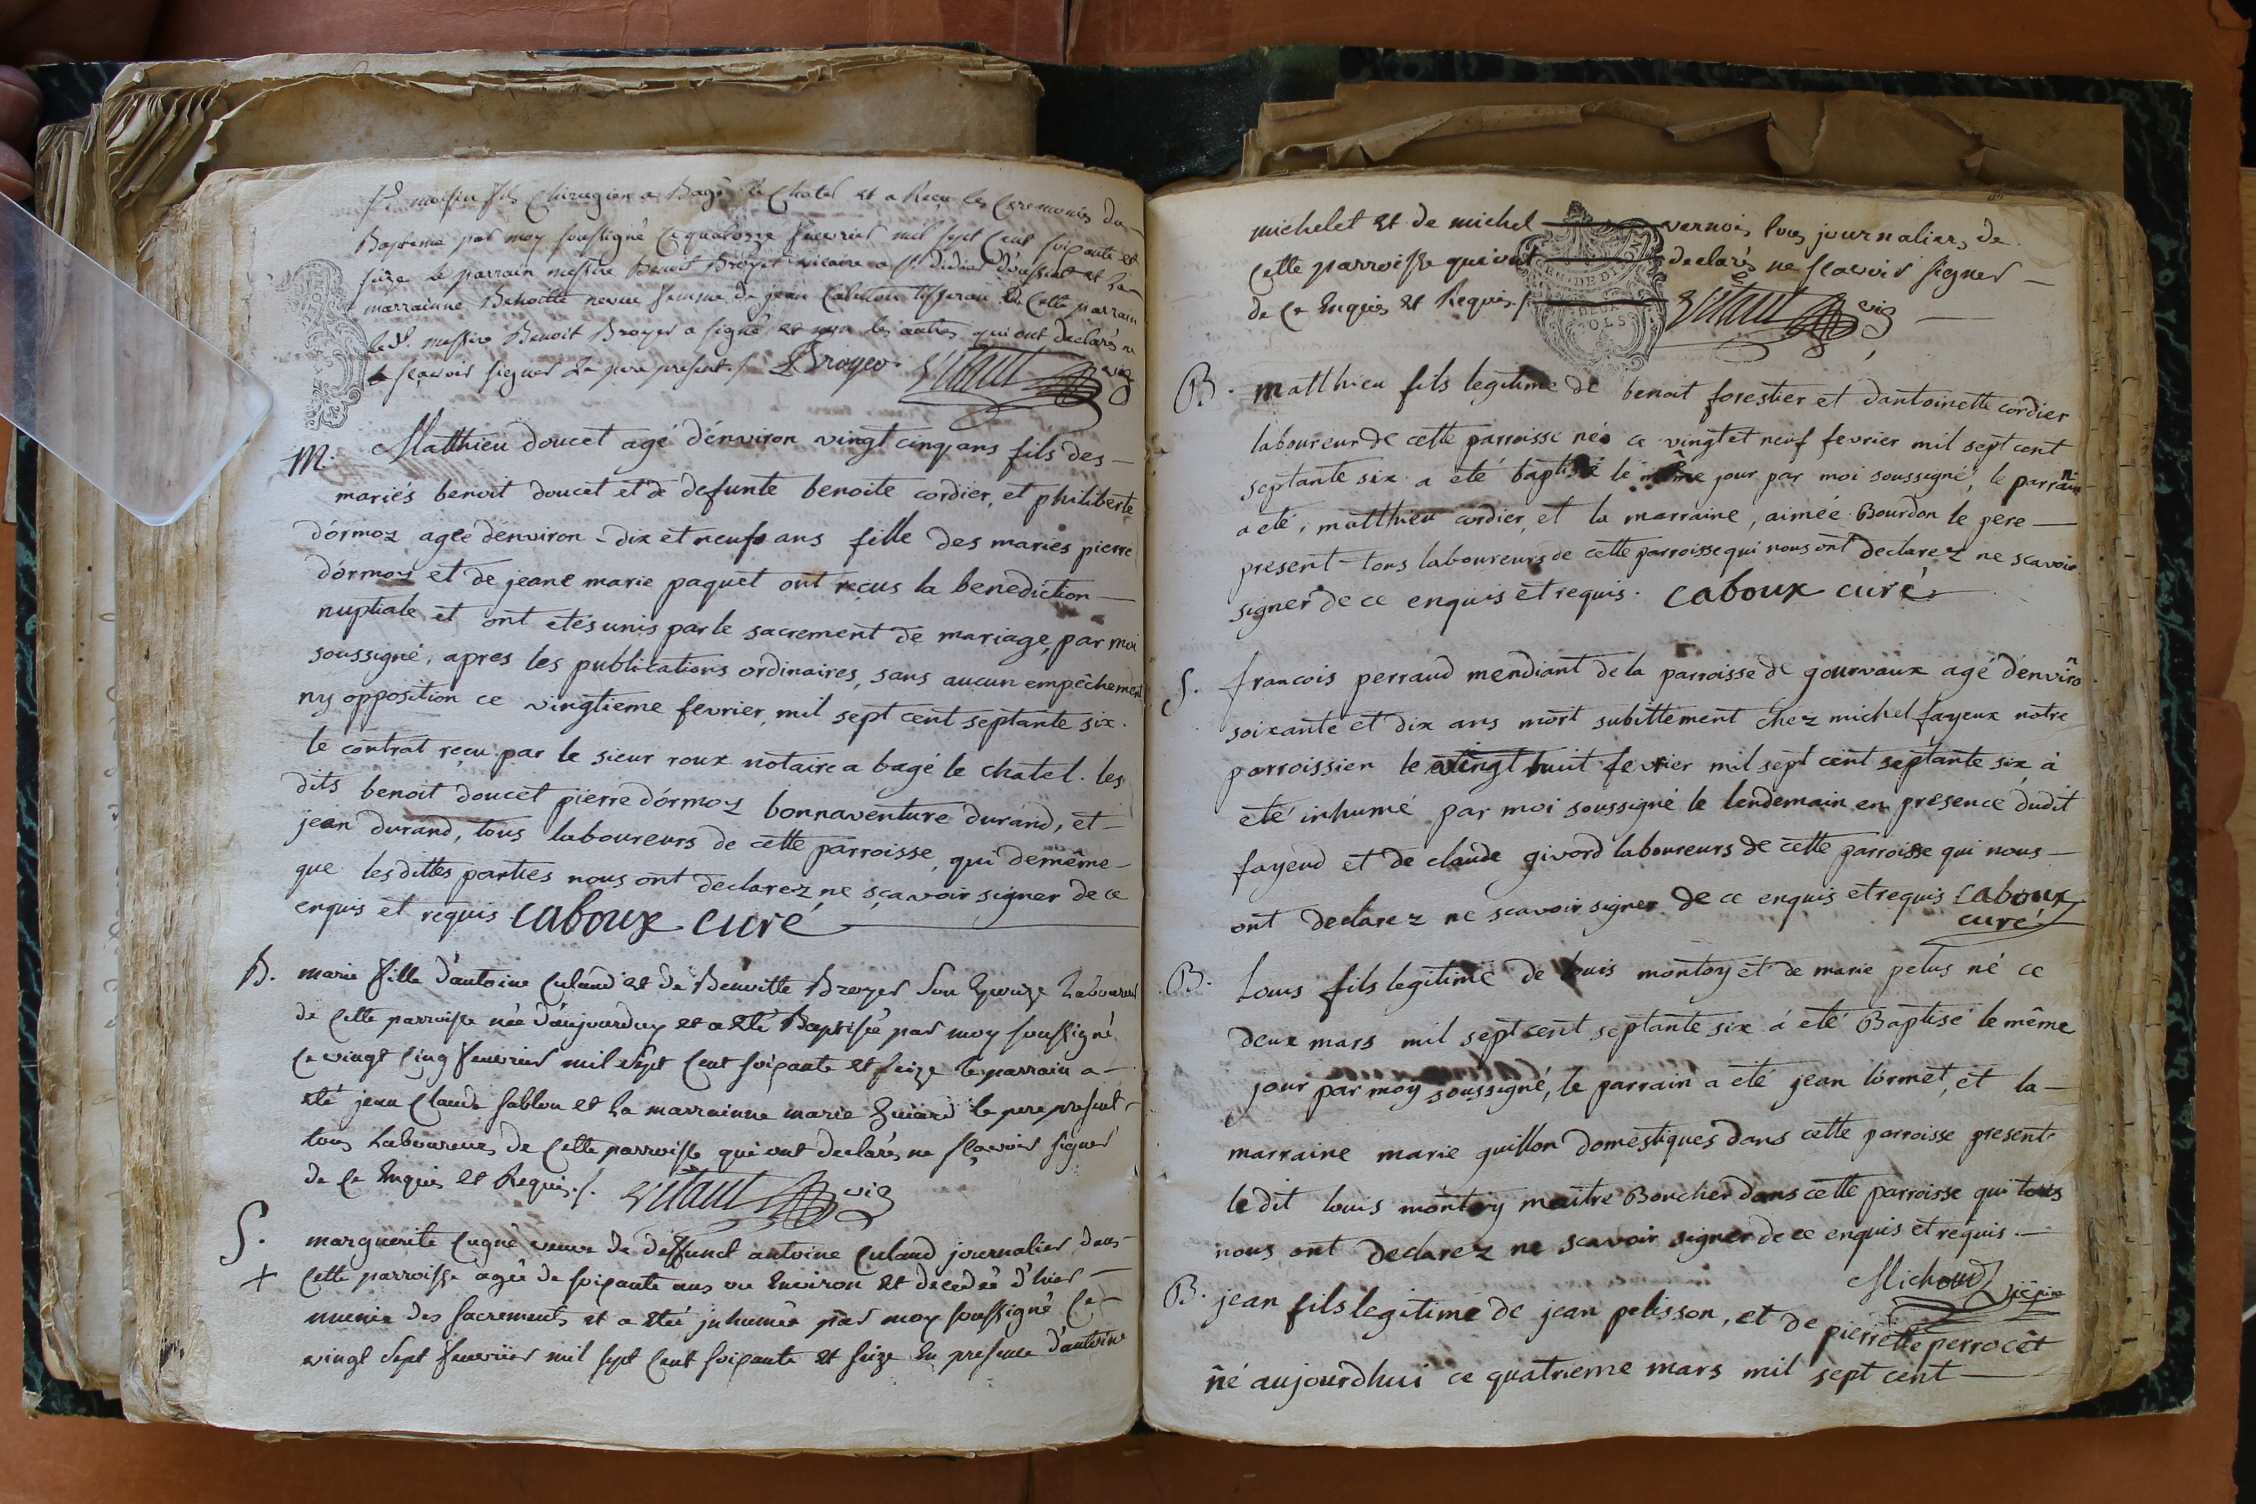 Sr moisin fils Chirugien a Bagé le Chatel et a Reçu les Ceremonies du
Bapteme par moy soussigné ce quatorze feuvrier mil sept cent soipante et
seize le parrain messire Benoit Broyer vicaire a St didier d'oussiat et La
marrainne Benoitte nevue femme de jean Cabuton tisseran de cette parrain
ledt. messire Benoit Broyer a signé et non les autres qui ont declarés ne
le sçavoir signer Le pere present /. Broyer Vitaut vic
M. Matthieu doucet agé d'environ vingt cinq ans fils des
mariés benoit doucet et de defunte benoite cordier, et philiberte
d'ormoz ageé d'environ dix et neufs ans fille des maries pierre
d'ormoz et de jeane marie paquet ont reçus la benediction
nuptiale et ont etés unis par le sacrement de mariage, par moi
soussigné, apres les publications ordinaires, sans aucun empêchement
ny opposition ce vingtieme fevrier, mil sept cent septante six.
le contrat reçu par le sieur roux notaire a bagé le chatel. les
dits benoit doucet pierre d'ormoz bonnaventure durand, et
jean durand, tous laboureurs de cette parroisse, qui de même
que les dittes parties nous ont declarez ne sçavoir signer de ce
enquis et requis caboux curé
B. marie fille d'antoine Culand et de Benoitte Broyer son Epouze Laboureur
de cette parroisse née d'aujourduy et a été Baptisée par moy soussigné
ce vingt cinq feuvrier mil sept cent soipante et seize le parrain a
eté jean Claude sablon et La marrainne marie Guiard le pere present
tous Laboureurs de cette parroisse qui ont declarés ne sçavoir signer
de ce Enquis et Requis /. Vitaut vic
S. marguerite Cugne veuve de deffunct antoine Culand journalier dans
+ cette parroisse agée de soipante ans ou Environ et decedée d'hier
munie des sacrements et a eté jnhumée par moy soussigné ce
vingt sept feuvrier mil sept cent soipante et seize En presence d'antoine
michelet et de michel vernois tous journaliers de
cette parroisse qui ont declarés ne sçavoir signer
de ce Enquis et Requis /. Vitaut vic
B. matthieu fils legitime de benoit forestier et d'antoinette cordier
laboureur de cette parroisse née ce vingt et neuf fevrier mil sept cent
septante six a eté baptisé le même jour par moi soussigné, le parrain
a eté, matthieu cordier, et la marraine, aimée Bourdon le pere
present tous laboureurs de cette parroisse qui nous ont declarez ne scavoir
signer de ce enquis et requis. caboux curé
S. francois perraud mendiant de la parroisse de gourvaux agé d'environ
soixante et dix ans mort subittement chez michel fayeux notre
parroissien le vingt huit fevrier mil sept cent septante six à
eté inhumé par moi soussigné le lendemain en presence dudit
fayeud et de claude givord laboureurs de cette parroisse qui nous
ont declarez ne scavoir signer de ce enquis et requis caboux
curé
B. Louis fils legitime de louis montoy et de marie pelus né ce
deux mars mil sept cent septante six á eté Baptisé le même
jour par moy soussigné, le parrain a eté jean lórmet, et la
marraine marie guillon domestiques dans cette parroisse present
le dit louis montoy maitre Boucher dans cette parroisse qui tous
nous ont declarez ne scavoir signer de ce enquis et requis.
Michoud
B. jean fils legitime de jean pelisson, et de pierrette perrocêt
né aujourdhui ce quatrieme mars mil sept cent